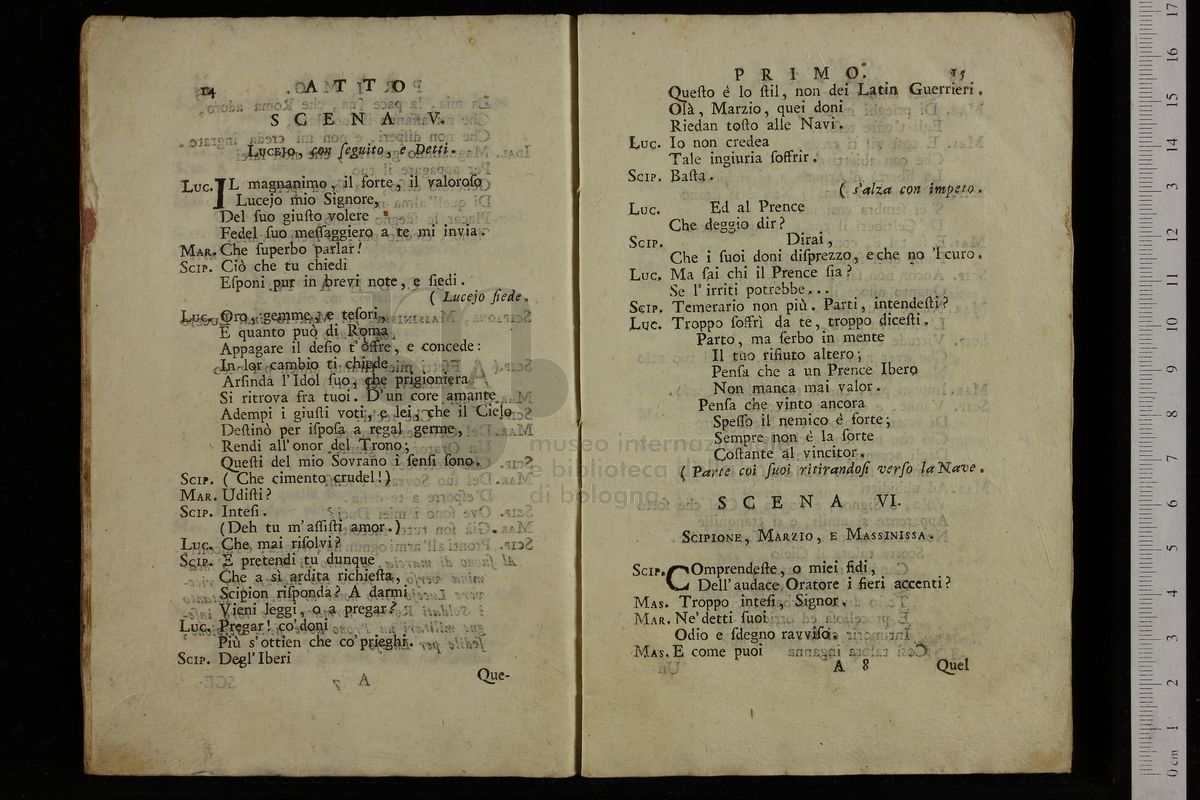 14 ATTO
SCENA V.
Lucejo, con ſeguito, e Detti.
Luc. IL magnanimo, il forte, il valoroſo
Lucejo mio Signore,
Del ſuo giuſto volere
Fedel ſuo meſſaggiero a te mi invia.
Mar. Che ſuperbo parlar!
Scip. Ciò che tu chiedi
Eſponi pur in brevi note, e ſiedi.
( Lucejo ſiede.
Luc. Oro, gemme, e teſori,
E quanto può di Roma
Appagare il deſio t'offre, e concede:
In lor cambio ti chiede
Arſinda l'Idol ſuo, che prigioniera
Si ritrova fra tuoi. D'un core amante
Adempi i giuſti voti, e lei, che il Cielo
Deſtinò per iſpoſa a regal germe,
Rendi all'onor del Trono;
Queſti del mio Sovrano i ſenſi ſono.
Scip. ( Che cimento crudel!)
Mar. Udiſti?
Scip. Inteſi.
(Deh tu m'aſſiſti amor.)
Luc. Che mai riſolvi?
Scip. E pretendi tu dunque
Che a sì ardita richieſta,
Scipion riſponda? A darmi
Vieni leggi, o a pregar?
Luc. Pregar! co'doni
Più s'ottien che co'prieghi.
Scip. Degl'Iberi
A 7 Que-
PRIMO. 15
Queſto è lo ſtil, non dei Latin Guerrieri.
Olà, Marzio, quei doni
Riedan toſto alle Navi.
Luc. Io non credea
Tale ingiuria ſoffrir.
Scip. Baſta.
( s'alza con impeto.
Luc. Ed al Prence
Che deggio dir?
Scip. Dirai,
Che i ſuoi doni diſprezzo, e che no 'l curo.
Luc. Ma ſai chi il Prence ſia?
Se l'irriti potrebbe...
Scip. Temerario non più. Parti, intendeſti?
Luc. Troppo ſoffrì da te, troppo diceſti.
Parto, ma ſerbo in mente
Il tuo rifiuto altero;
Penſa che a un Prence Ibero
Non manca mai valor.
Penſa che vinto ancora
Speſſo il nemico è forte;
Sempre non è la ſorte
Coſtante al vincitor.
( Parte coi ſuoi ritirandoſi verſo la Nave.
SCENA VI.
Scipione, Marzio, e Massinissa.
Scip. COmprendeſte, o miei fidi,
Dell'audace Oratore i fieri accenti?
Mas. Troppo inteſi, Signor.
Mar. Ne'detti ſuoi
Odio e ſdegno ravviſai.
Mas. E come puoi
A 8 Quel
museo internazionale
e biblioteca della
di bologna
0cm 1 2 3 4 5 6 7 8 9 10 11 12 13 14 15 16 17